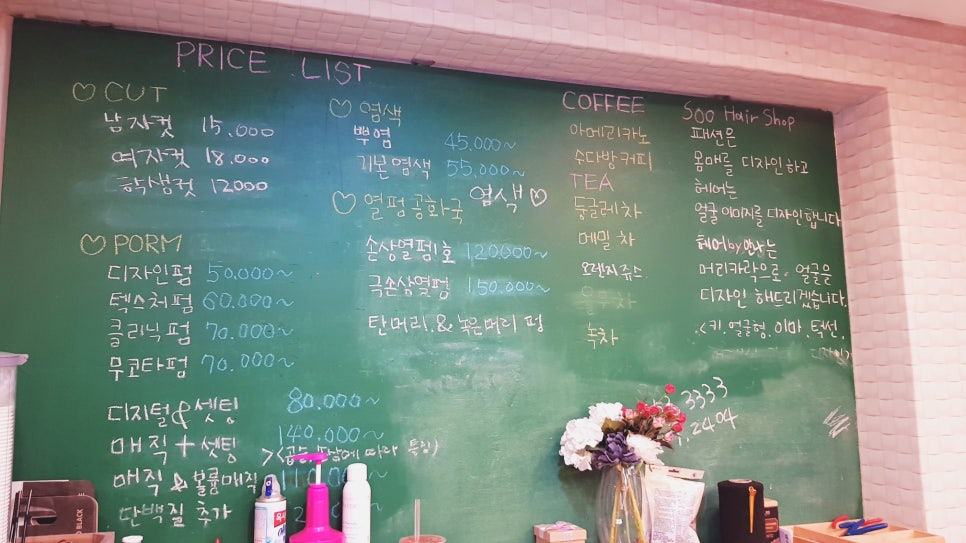 PRICE LIST
♡ CUT
남자컷 15.000
여자컷 18.000
학생컷 12000
♡ PORM
디자인펌 50.000~
텍스처펌 60.000~
클리닉펌 70.000~
무코타펌 70.000~
디지털&셋팅 80.000~
매직+셋팅 140.000~
매직&볼륨매직 110.000~
단백질 추가
♡ 염색
뿌염 45.000~
기본염색 55.000~
♡ 열펌공화국 염색♡
손상열펌1호 120000~
극손상열펌 150.000~
탄머리.&녹은머리 펌
COFFEE
아메리카노
수다방커피
TEA
둥글레차
메밀차
오렌지쥬스
녹차
Soo Hair Shop
패션은
몸매를 디자인하고
헤어는
얼굴이미지를 디자인합니다
헤어by안나는
머리카락으로. 얼굴을
디자인 해드리겠습니다.
<키.얼굴형.이마.턱선.
3333
.2404